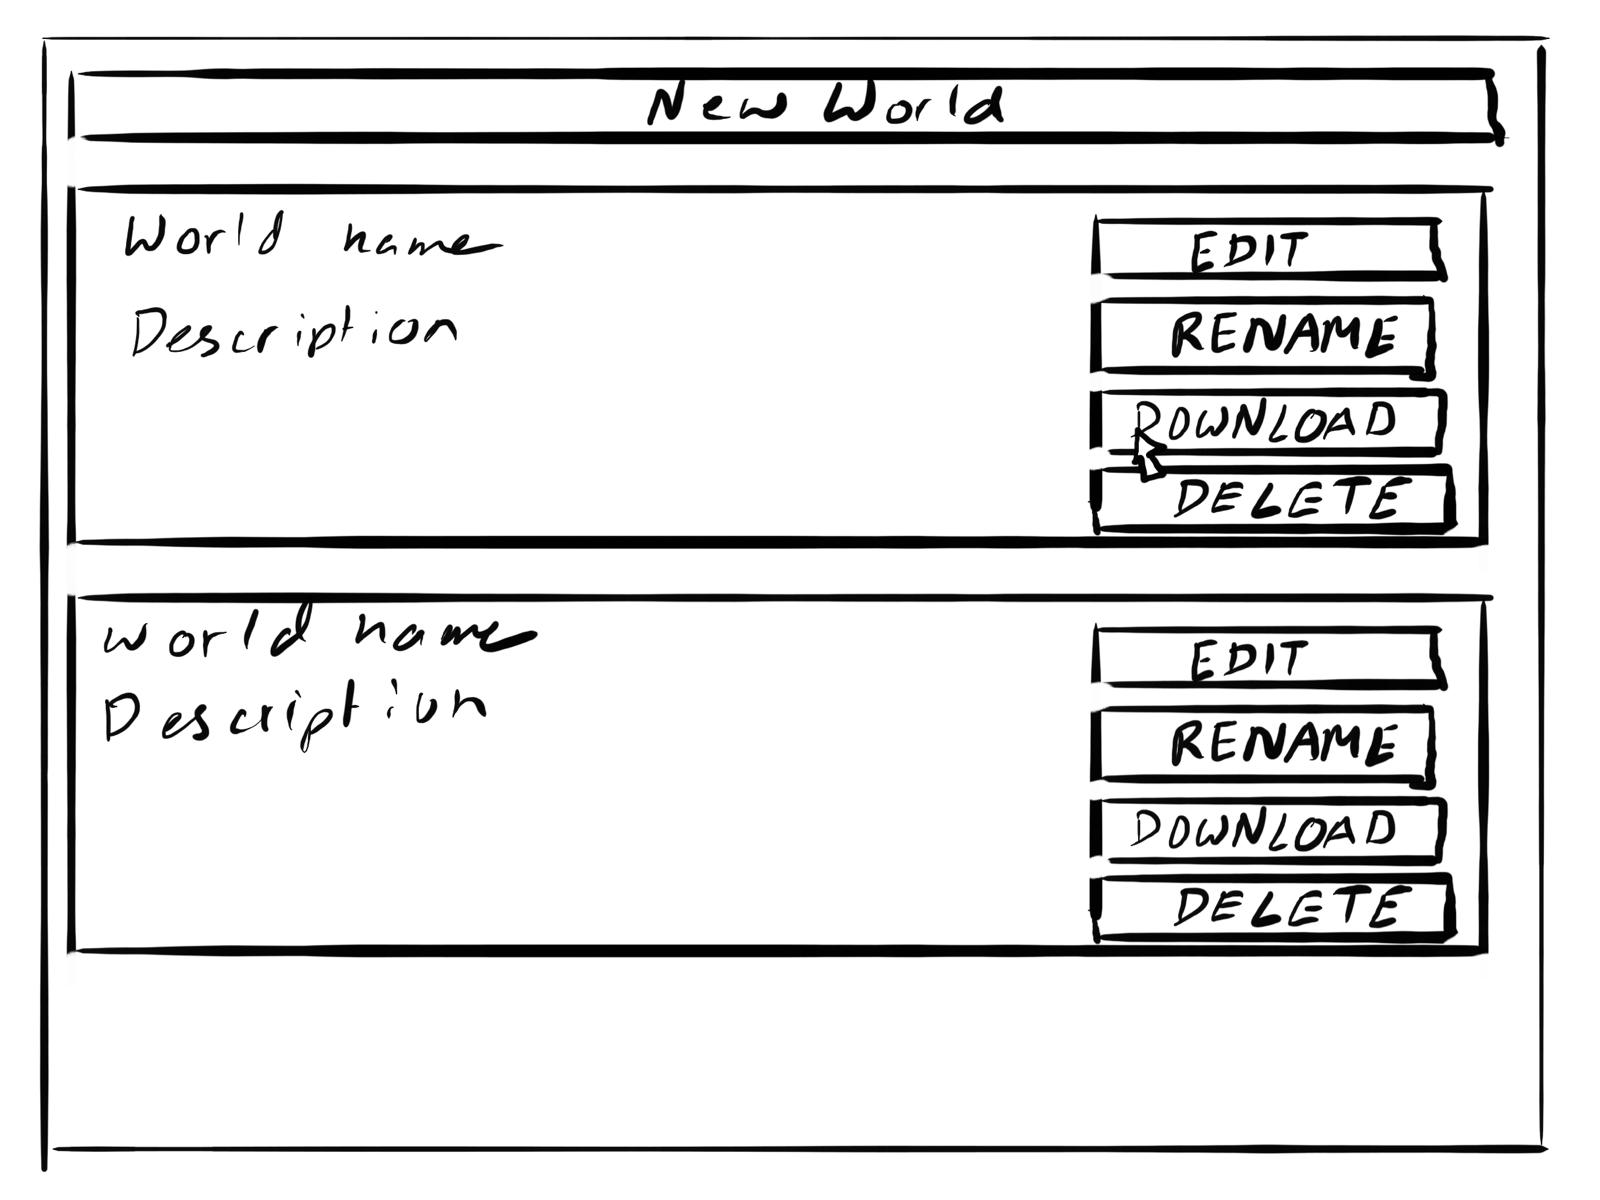 New World
World name
Description
EDIT
RENAME
DOWNLOAD
DELETE
world name
Description
EDIT
RENAME
DOWNLOAD
DELETE